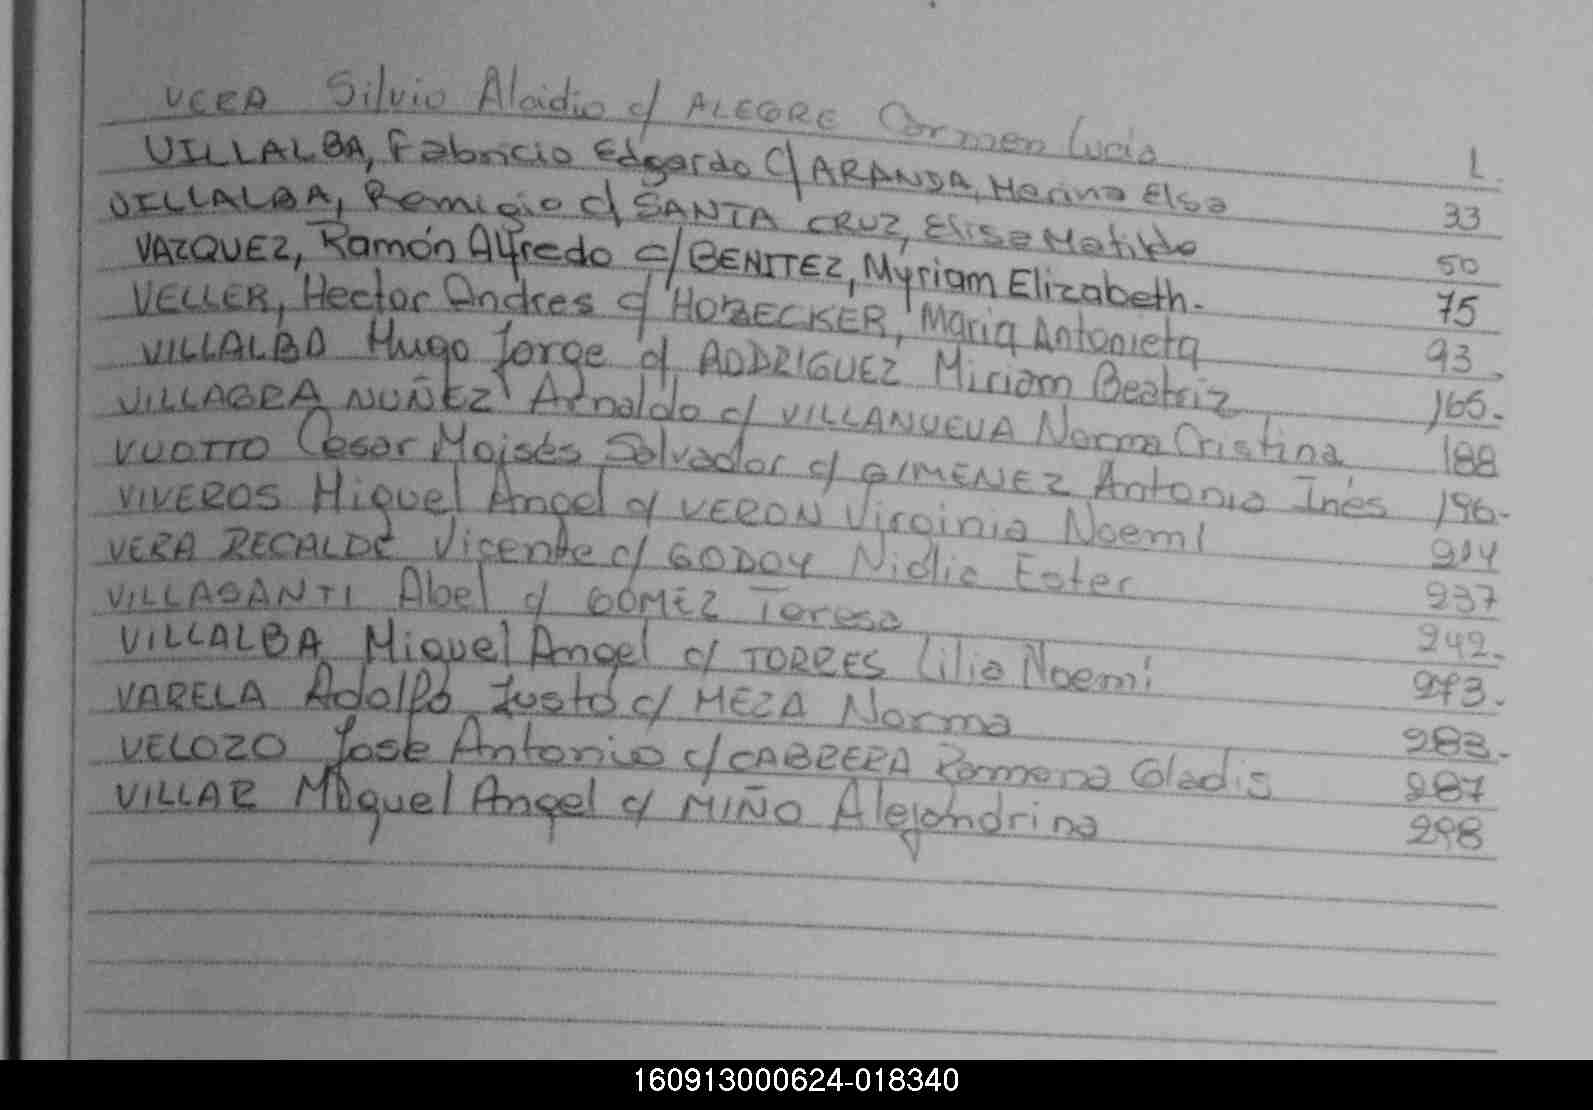 VERA Silvio Alcidio c/ ALEGRE Carmen Lucia 1.
VILLALBA, Fabricio Edgardo C/ ARANDA, Marina Elsa 33
VILLALBA, Remigio c/ SANTA CRUZ, Elisa Matilde 50
VAZQUEZ, Ramón Alfredo c/ BENITEZ, Myriam Elizabeth. 75
VELLER, Hector Andres c/ HOBECKER, Maria Antonieta 93
VILLALBA Hugo Jorge c/ RODRIGUEZ Miriam Beatriz 165.
VILLAGRA NUÑEZ Arnaldo c/ VILLANUEVA Norma Cristina 188
VUOTTO Cesar Moisés Salvador c/ GIMENEZ Antonia Inés 196.
VIVEROS Miguel Angel c/ VERON Virginia Noemi 214
VERA RECALDE Vicente c/ GODOY Nidia Ester 237
VILLASANTI Abel c/ GOMEZ Teresa 242.
VILLALBA Miguel Angel c/ TORRES Lilia Noemi 273.
VARELA Adolfo Justo c/ MEZA Norma 283.
VELOZO Jose Antonio c/ CABRERA Ramona Gladis 287
VILLAR Miguel Angel c/ MIÑO Alejandrina 298
160913000624-018340